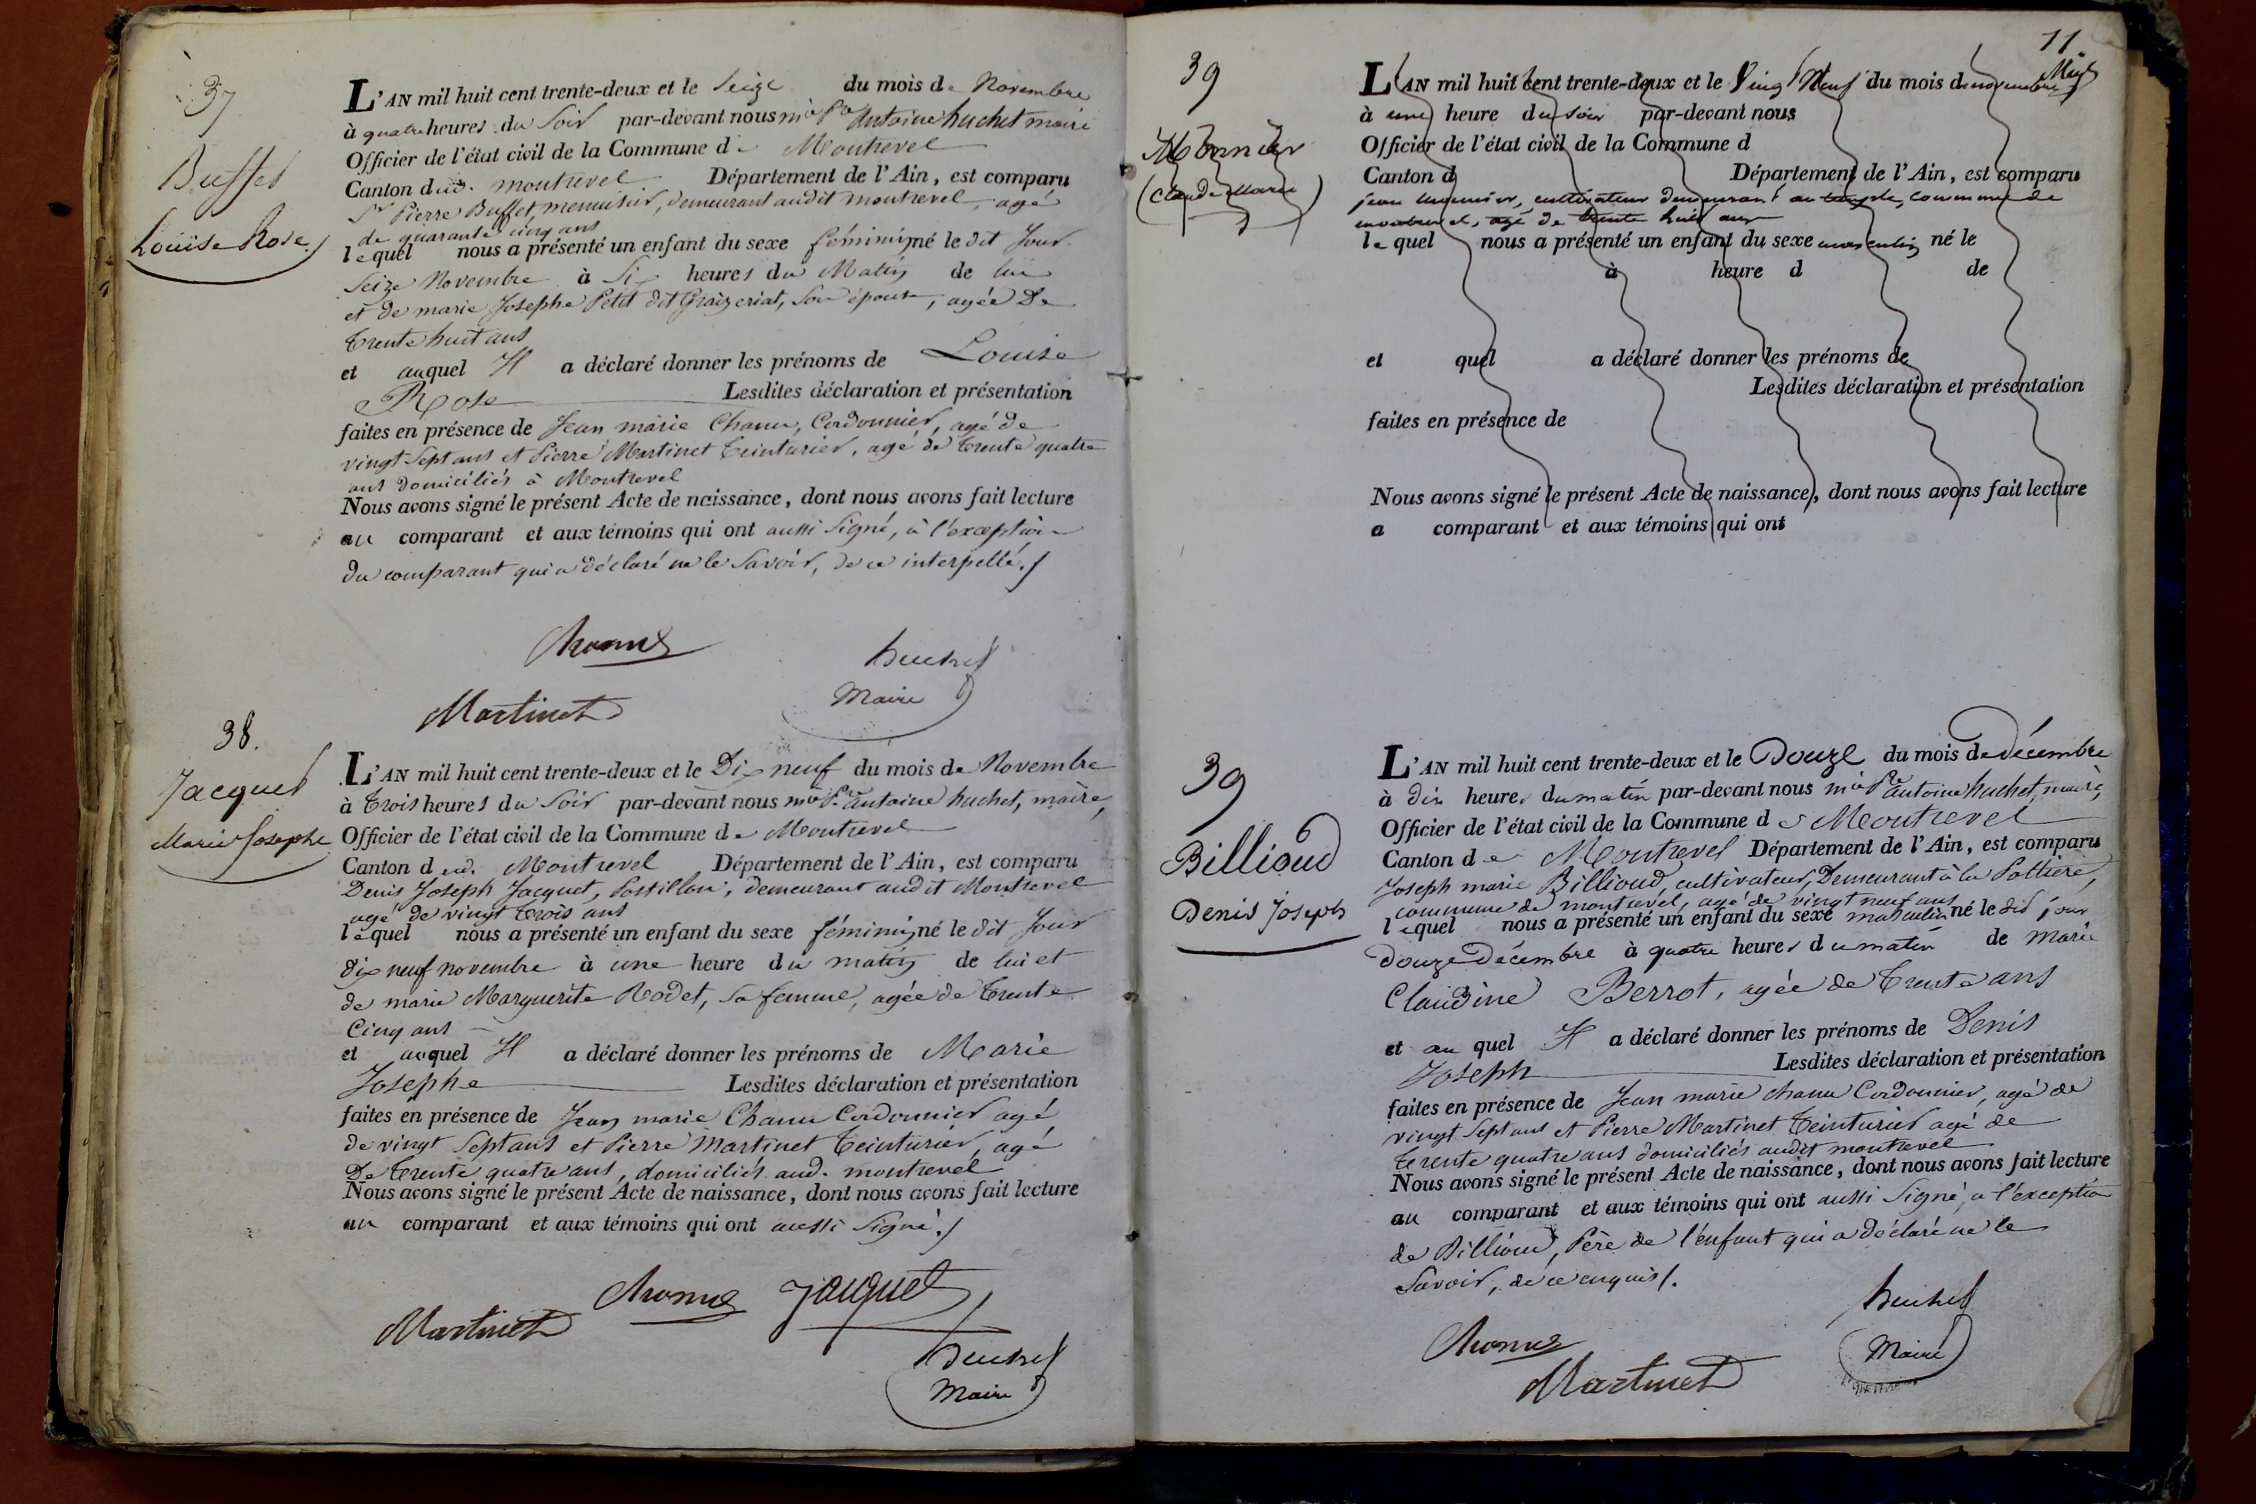 37
Buffet
Louise Rose
L'AN mil huit cent trente-deux et le Seize du mois de Novembre
à quatre heures du Soir par-devant nous Mie Pre Antoine huchet maire
Officier de l'état civil de la Commune de Montrevel
Canton dud. montrevel Département de l'Ain, est comparu
Sr Pierre Buffet, menuisier, demeurant audit montrevel, agé
de quarante cinq ans
lequel nous a présenté un enfant du sexe féminin né le dit Jour
Seize Novembre à Six heures du Matin de lui
et de marie Josephe Petit dit , son épouse, agée De
trente huit ans
et auquel Il a déclaré donner les prénoms de Louise
Rose Lesdites déclaration et présentation
faites en présence de Jean marie Chanu, Cordonnier, agé de
vingt Sept ans et Pierre Martinet teinturier, agé de trente quatre
ans domiciliés à Montrevel
Nous avons signé le présent Acte de naissance, dont nous avons fait lecture
au comparant et aux témoins qui ont aussi Signé, à l'exception
du comparant qui a déclaré ne le Savoir, de ce interpellé./
Chanu
huchet
Maire
Martinet
38.
Jacquet
Marie Josephe
L'AN mil huit cent trente-deux et le Dix neuf du mois de Novembre
à trois heures du Soir par-devant nous mie Pre antoine huchet, maire,
Officier de l'état civil de la Commune de Montrevel
Canton dud. Montrevel Département de l'Ain, est comparu
Denis Joseph Jacquet, Postillon, demeurant audit Montrevel
agé de vingt trois ans
lequel nous a présenté un enfant du sexe féminin né le dit Jour
dix neuf novembre à une heure du matin de lui et
de marie Marguerite Rodet, sa femme, agée de trente
Cinq ans
et auquel Il a déclaré donner les prénoms de Marie
Josephe Lesdites déclaration et présentation
faites en présence de Jean marie Chanu Cordonnier agé
de vingt Sept ans et Pierre Martinet teinturier, agé
De trente quatre ans, domiciliés aud. montrevel
Nous avons signé le présent Acte de naissance, dont nous avons fait lecture
au comparant et aux témoins qui ont aussi Signé./
Martinet Chanu Jacquet
huchet
Maire
11
39
Monnier
(Claude Marie)
L'AN mil huit cent trente-deux et le Vingt Neuf du mois de novembre
à une heure du soir par-devant nous
Officier de l'état civil de la Commune d
Canton d Département de l'Ain, est comparu
jean monnier, cultivateur demeurant au temple, commune de
montrevel, agé de trente huit ans
lequel nous a présenté un enfant du sexe masculin né le
à heure d de
et quel a déclaré donner les prénoms de
Lesdites déclaration et présentation
faites en présence de
Nous avons signé le présent Acte de naissance, dont nous avons fait lecture
a comparant et aux témoins qui ont
39
Billioud
Denis Joseph
L'AN mil huit cent trente-deux et le Douze du mois de décembre
à dix heures du matin par-devant nous mie Pre antoine huchet, maire,
Officier de l'état civil de la Commune de Montrevel
Canton de Montrevel Département de l'Ain, est comparu
Joseph marie Billioud, cultivateur, Demeurant à la Pottiere,
commune de montrevel, agé de vingt neuf ans
lequel nous a présenté un enfant du sexe masculin né le dit jour
Douze Décembre à quatre heures du matin de Marie
Claudine Berrot, agée de trente ans
et au quel Il a déclaré donner les prénoms de Denis
Joseph Lesdites déclaration et présentation
faites en présence de Jean marie Chanu Cordonnier, agé de
vingt Sept ans et Pierre Martinet teinturier agé de
trente quatre ans domiciliés audit montrevel
Nous avons signé le présent Acte de naissance, dont nous avons fait lecture
au comparant et aux témoins qui ont aussi Signé, à l'exception
de Billioud, Père de l'enfant qui a déclaré ne le
Savoir, de ce enquis/.
huchet
Chanu
Maire
Martinet